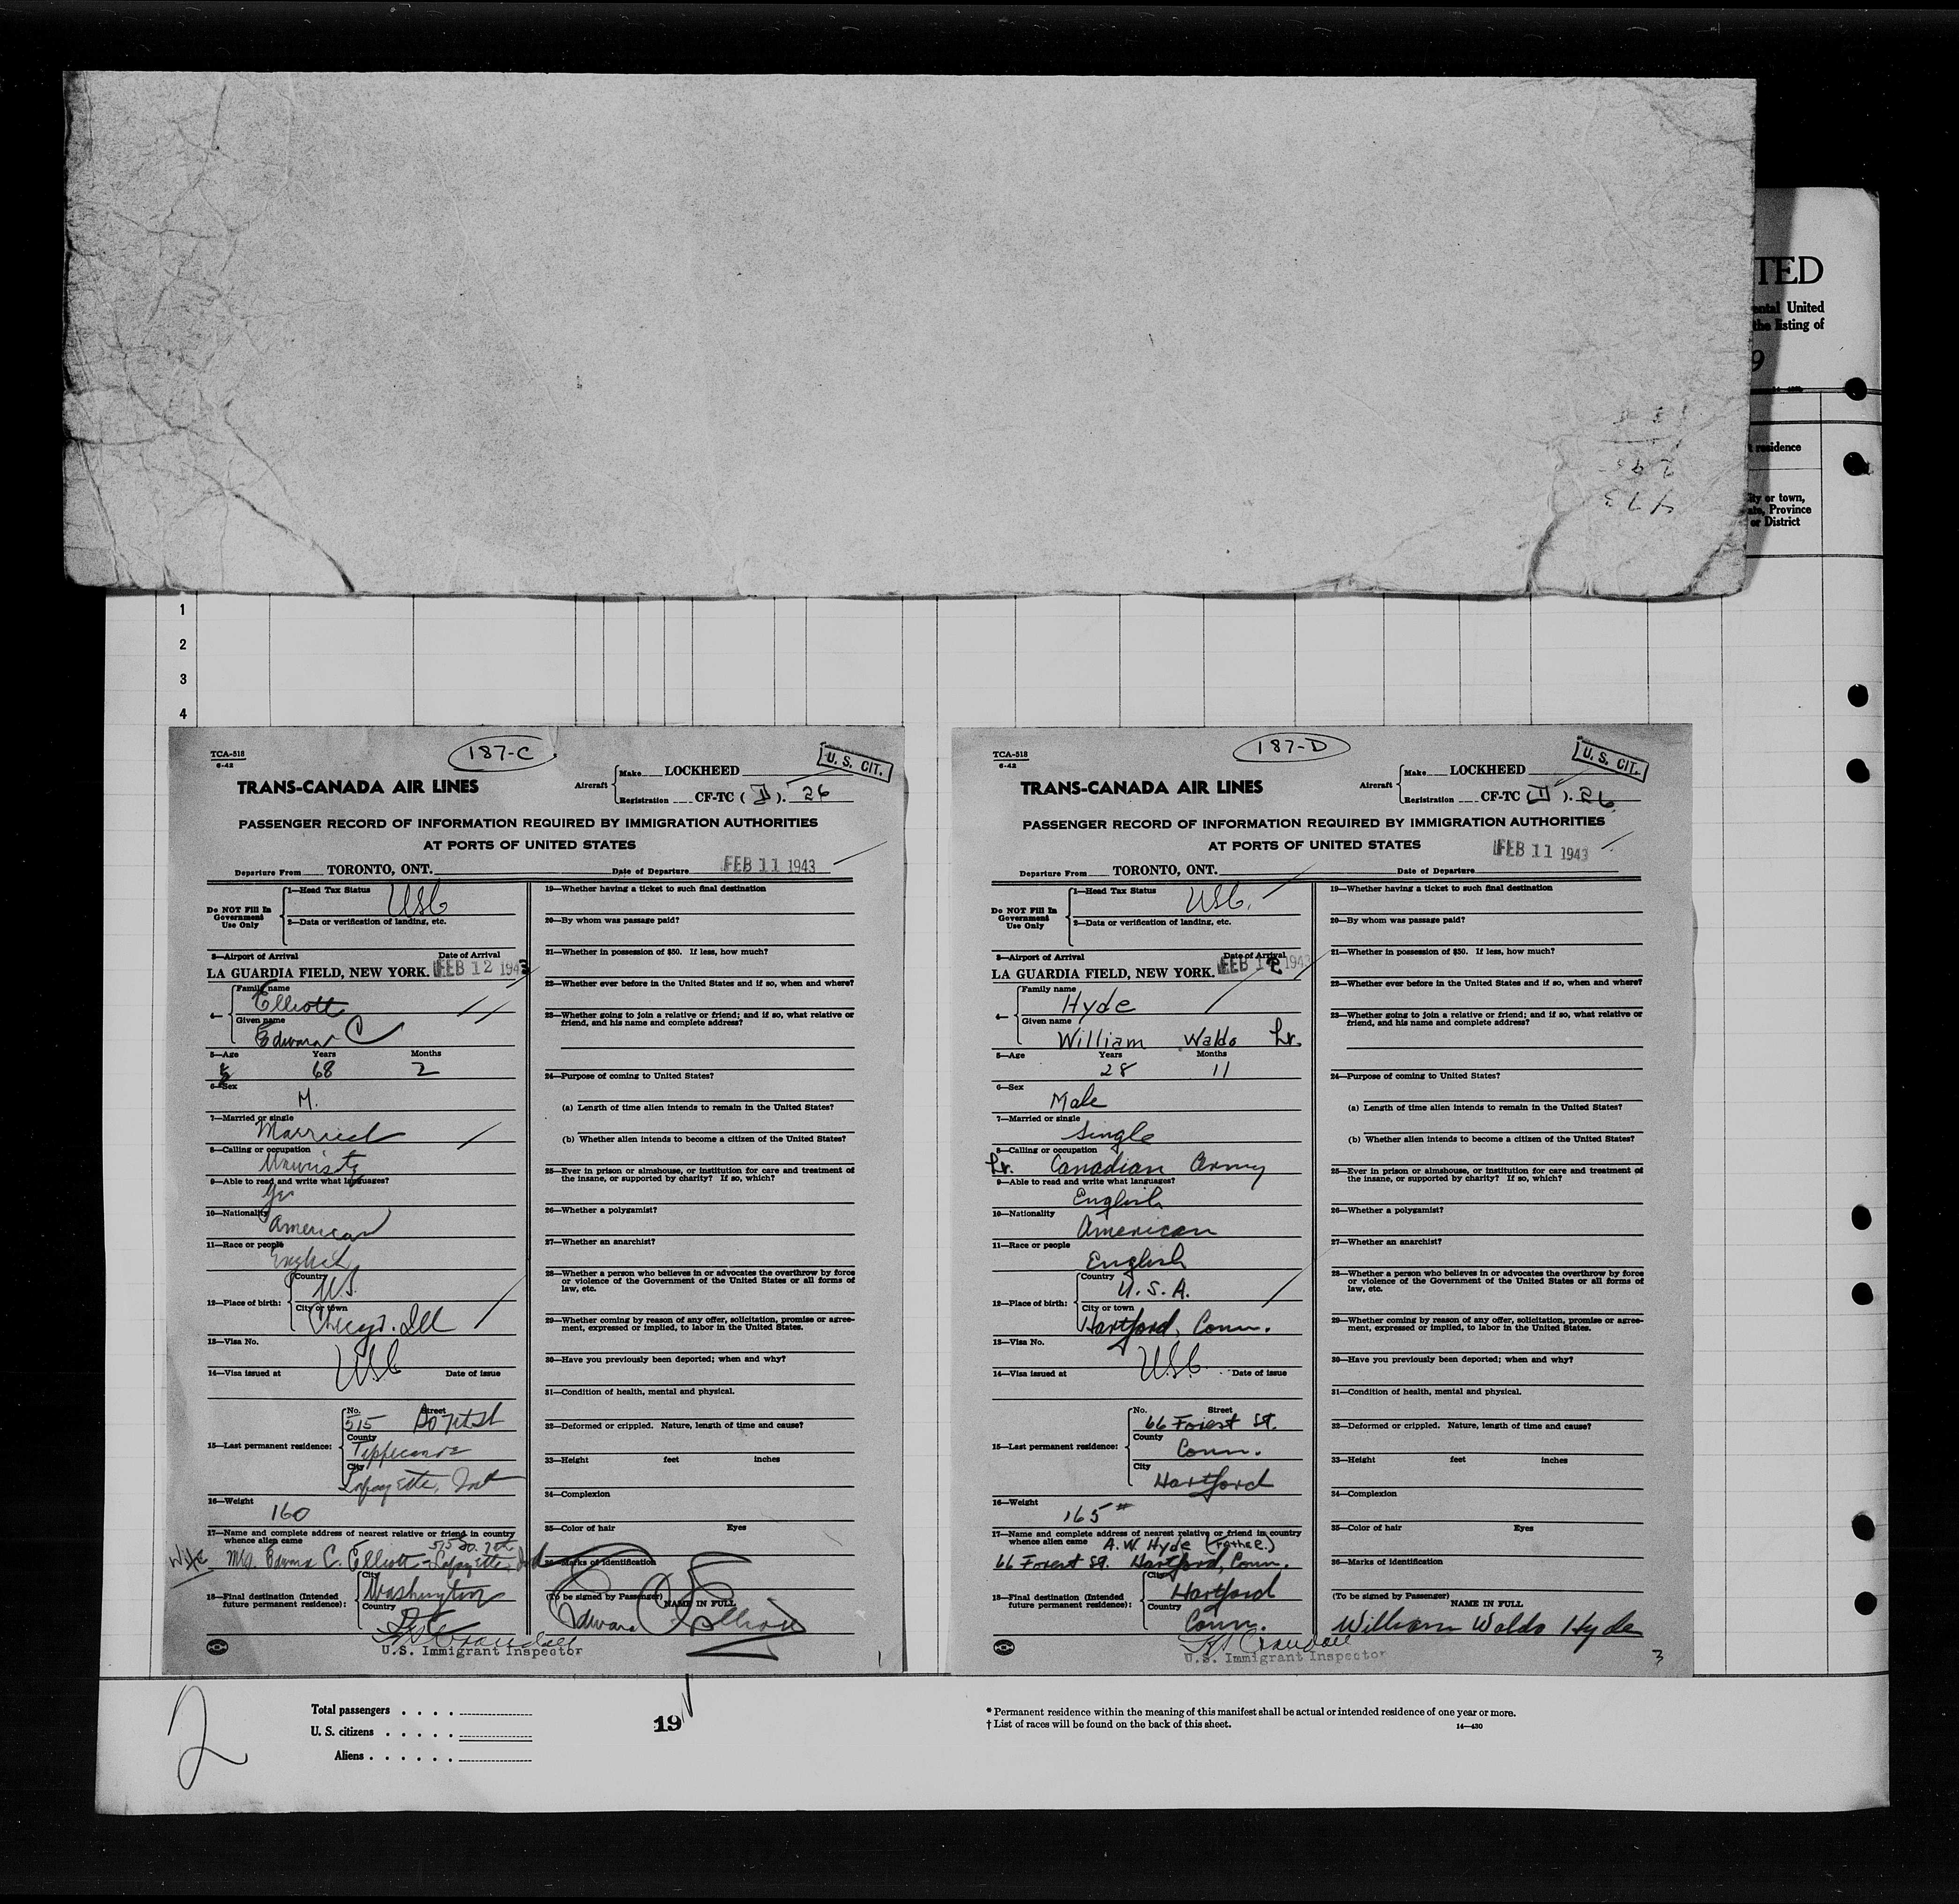 TED
ental United
the listing of
9
t residence
City or town,
ate, Province
or District
1
2
3
4
187-C
TCA-518
6-42
U. S. CIT.
TRANS-CANADA AIR LINES
Aircraft
Make LOCKHEED
Registration CF-TC ( ). 26
PASSENGER RECORD OF INFORMATION REQUIRED BY IMMIGRATION AUTHORITIES
AT PORTS OF UNITED STATES
Departure From TORONTO, ONT. Date of Departure FEB 11 1943
Do NOT Fill In
Government
Use Only
1—Head Tax Status USC
2—Data or verification of landing, etc.
3—Airport of Arrival Date of Arrival
LA GUARDIA FIELD, NEW YORK. FEB 12 1943
4—
Family name
Elliott
Given name
Edward C
5—Age Years Months
68 2
6—Sex
M.
7—Married or single
Married
8—Calling or occupation
University
9—Able to read and write what languages?
Yes
10—Nationality
American
11—Race or people
English
12—Place of birth:
Country
U.S.
City or town
Chicago. Ill
13—Visa No.
USC
14—Visa issued at Date of issue
15—Last permanent residence:
No. Street
515 So 7th St
County
Tippecanoe
City
Lafayette, Ind
16—Weight
160
17—Name and complete address of nearest relative or friend in country
whence alien came 515 So. 7th
Wife Mrs. Edward C. Elliott - Lafayette, Ind
18—Final destination (Intended
future permanent residence):
City
Washington
Country
D.C.
U.S. Immigrant Inspector
19—Whether having a ticket to such final destination
20—By whom was passage paid?
21—Whether in possession of $50. If less, how much?
22—Whether ever before in the United States and if so, when and where?
23—Whether going to join a relative or friend; and if so, what relative or
friend, and his name and complete address?
24—Purpose of coming to United States?
(a) Length of time alien intends to remain in the United States?
(b) Whether alien intends to become a citizen of the United States?
25—Ever in prison or almshouse, or institution for care and treatment of
the insane, or supported by charity? If so, which?
26—Whether a polygamist?
27—Whether an anarchist?
28—Whether a person who believes in or advocates the overthrow by force
or violence of the Government of the United States or all forms of
law, etc.
29—Whether coming by reason of any offer, solicitation, promise or agree-
ment, expressed or implied, to labor in the United States.
30—Have you previously been deported; when and why?
31—Condition of health, mental and physical.
32—Deformed or crippled. Nature, length of time and cause?
33—Height feet inches
34—Complexion
35—Color of hair Eyes
36—Marks of identification
(To be signed by Passenger) NAME IN FULL
Edward C Elliott
1
187-D
TCA-518
6-42
U. S. CIT.
TRANS-CANADA AIR LINES
Aircraft
Make LOCKHEED
Registration CF-TC ( ). 26
PASSENGER RECORD OF INFORMATION REQUIRED BY IMMIGRATION AUTHORITIES
AT PORTS OF UNITED STATES
FEB 11 1943
Departure From TORONTO, ONT. Date of Departure
Do NOT Fill In
Government
Use Only
1—Head Tax Status USC.
2—Data or verification of landing, etc.
3—Airport of Arrival Date of Arrival
LA GUARDIA FIELD, NEW YORK. FEB 12 1943
4—
Family name
Hyde
Given name
William Waldo Lt.
5—Age Years Months
28 11
6—Sex
Male
7—Married or single
Single
8—Calling or occupation
Lt. Canadian Army
9—Able to read and write what languages?
English
10—Nationality
American
11—Race or people
English
12—Place of birth:
Country
U.S.A.
City or town
Hartford, Conn.
13—Visa No.
USC
14—Visa issued at Date of issue
15—Last permanent residence:
No. Street
66 Forest St.
County
Conn.
City
Hartford
16—Weight
165#
17—Name and complete address of nearest relative or friend in country
whence alien came A. W. Hyde (Father)
66 Forest St. Hartford, Conn.
18—Final destination (Intended
future permanent residence):
City
Hartford
Country
Conn.
U.S. Immigrant Inspector
19—Whether having a ticket to such final destination
20—By whom was passage paid?
21—Whether in possession of $50. If less, how much?
22—Whether ever before in the United States and if so, when and where?
23—Whether going to join a relative or friend; and if so, what relative or
friend, and his name and complete address?
24—Purpose of coming to United States?
(a) Length of time alien intends to remain in the United States?
(b) Whether alien intends to become a citizen of the United States?
25—Ever in prison or almshouse, or institution for care and treatment of
the insane, or supported by charity? If so, which?
26—Whether a polygamist?
27—Whether an anarchist?
28—Whether a person who believes in or advocates the overthrow by force
or violence of the Government of the United States or all forms of
law, etc.
29—Whether coming by reason of any offer, solicitation, promise or agree-
ment, expressed or implied, to labor in the United States.
30—Have you previously been deported; when and why?
31—Condition of health, mental and physical.
32—Deformed or crippled. Nature, length of time and cause?
33—Height feet inches
34—Complexion
35—Color of hair Eyes
36—Marks of identification
(To be signed by Passenger) NAME IN FULL
William Waldo Hyde
3
2
Total passengers . . . .
U. S. citizens . . . . .
Aliens . . . . . .
19
* Permanent residence within the meaning of this manifest shall be actual or intended residence of one year or more.
† List of races will be found on the back of this sheet. 14—430